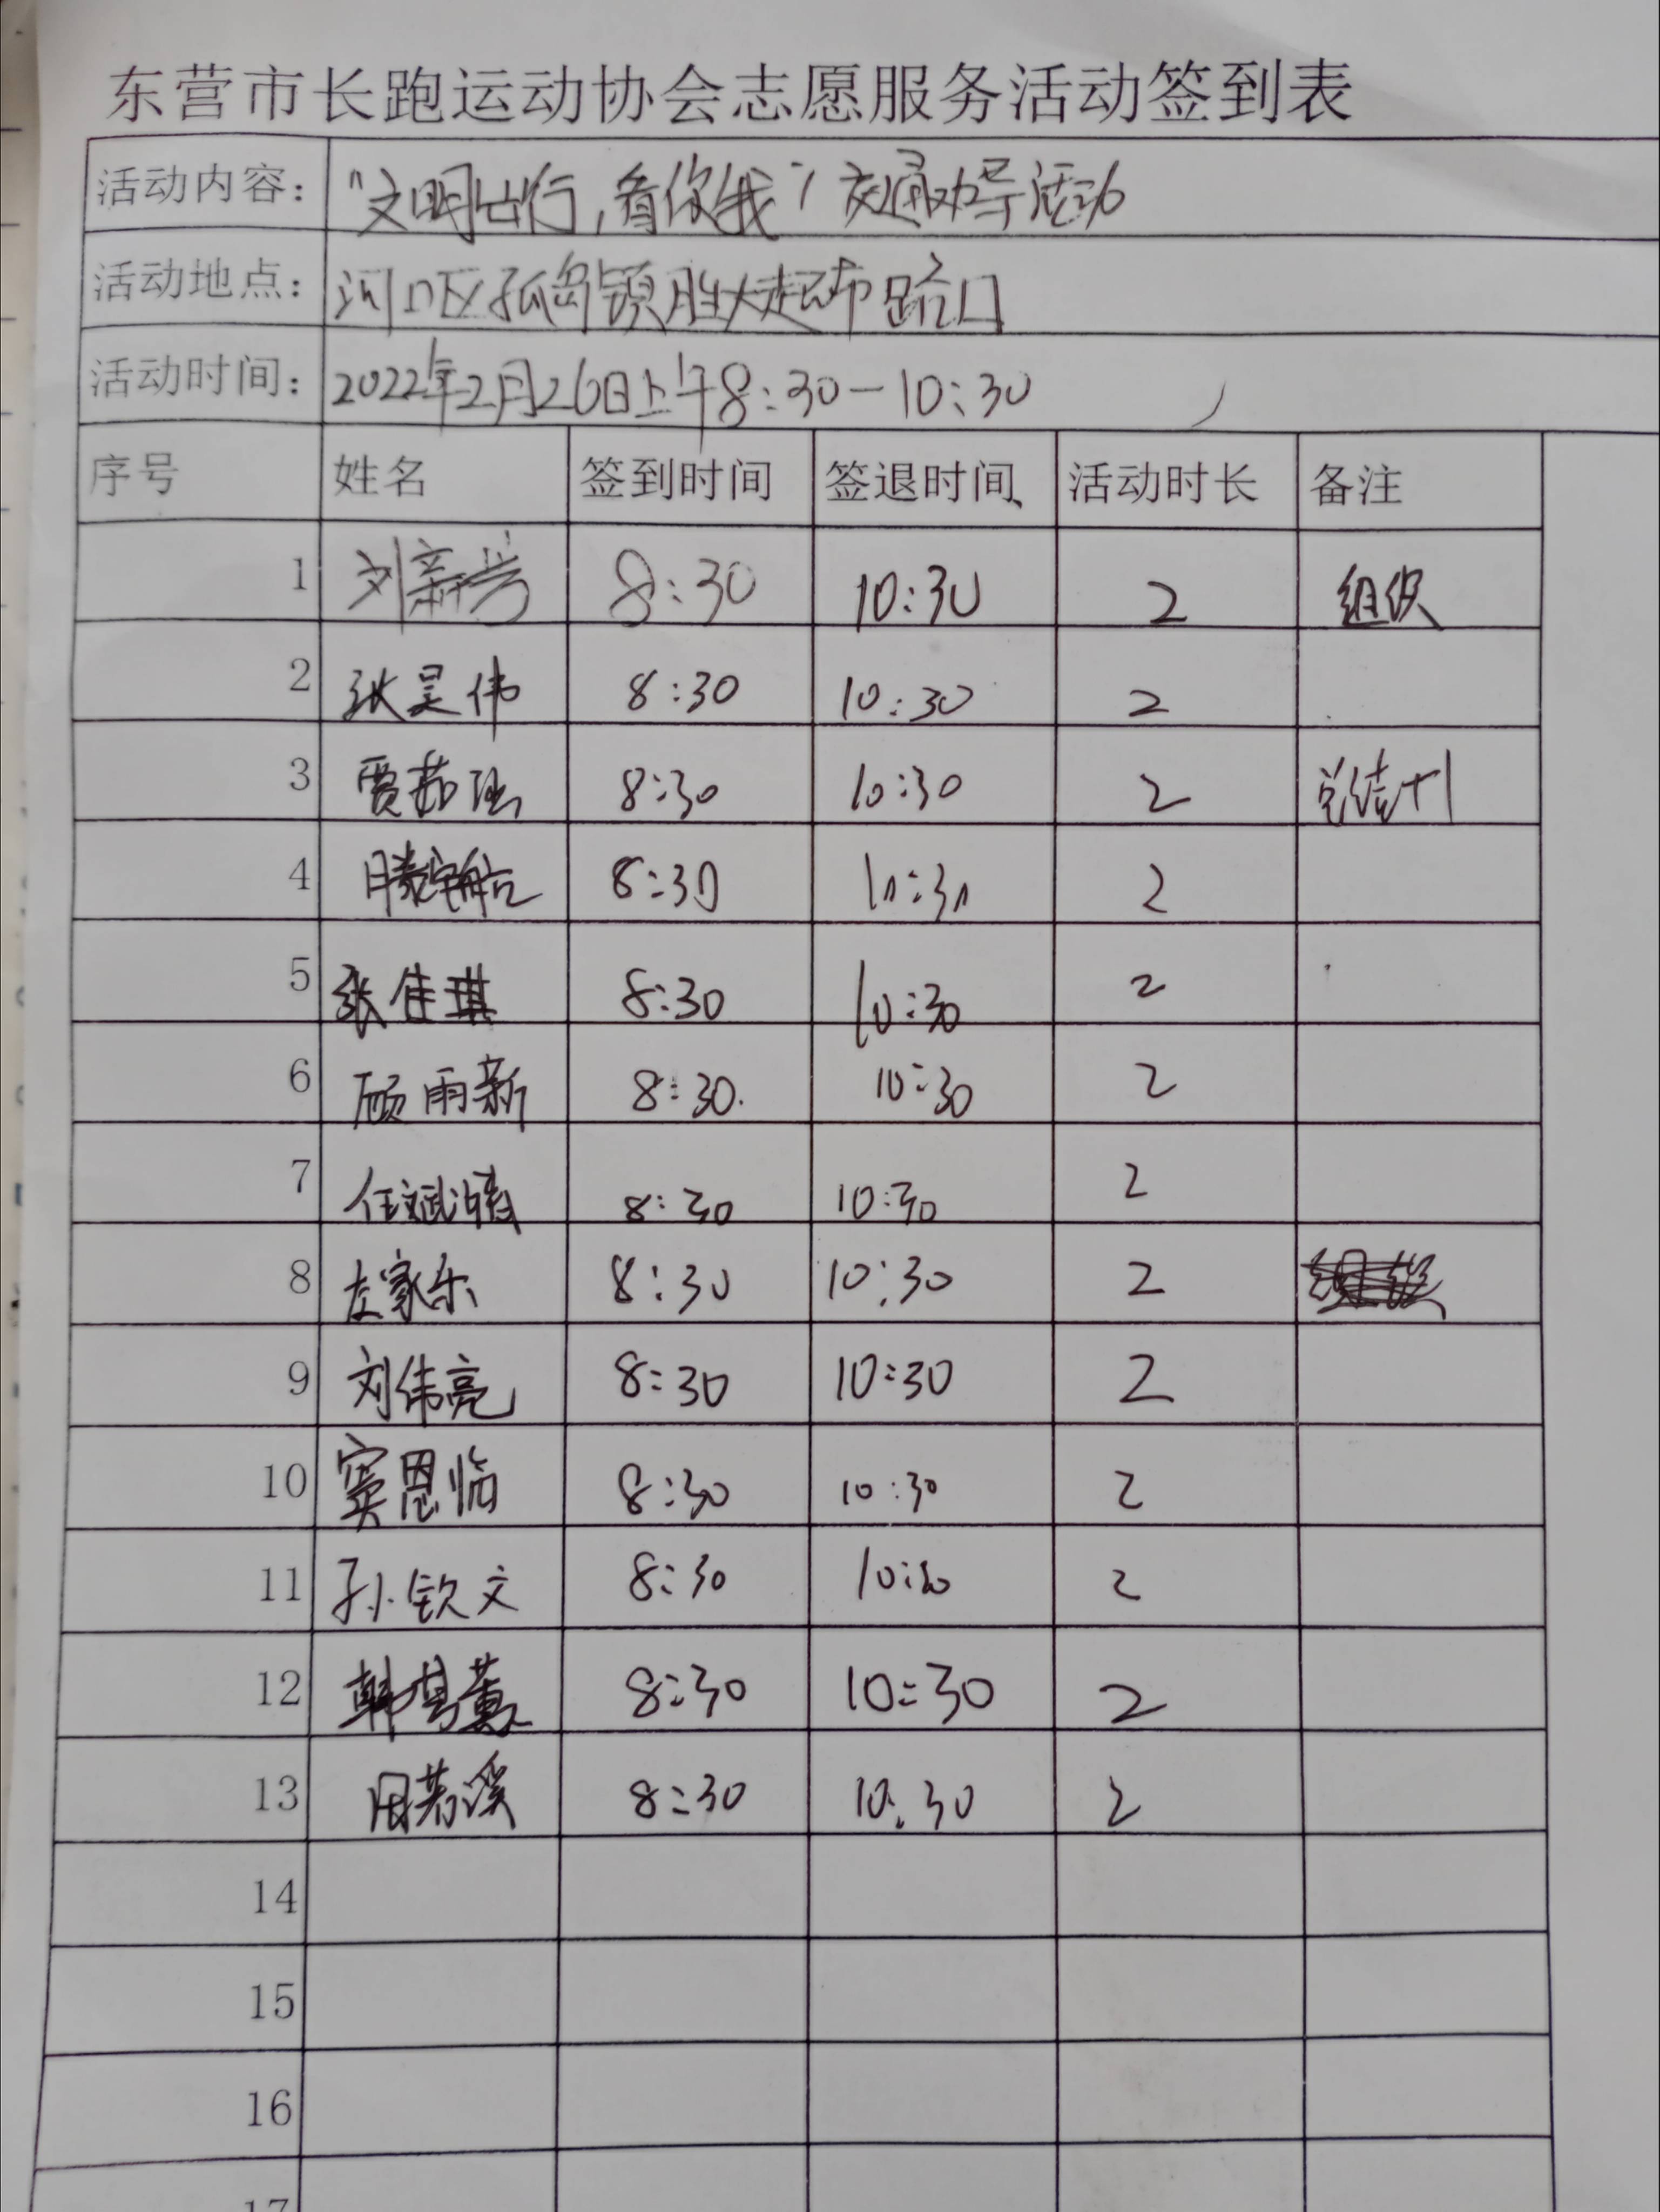 东营市长跑运动协会志愿服务活动签到表
活动内容： “文明出行，看你我”交通劝导活动
活动地点： 河口区孤岛镇胜大超市路口
活动时间： 2022年2月26日上午8:30-10:30
序号 姓名 签到时间 签退时间、 活动时长 备注
1 刘新 8:30 10:30 2 组织
2 张昊伟 8:30 10:30 2
3 贾茹 8:30 10:30 2 总结+1
4 滕宇航 8:30 10:30 2
5 张佳琪 8:30 10:30 2
6 顾雨新 8:30. 10:30 2
7 任斌 8:30 10:30 2
8 左家乐 8:30 10:30 2
9 刘伟亮 8:30 10:30 2
10 窦恩临 8:30 10:30 2
11 孙钦文 8:30 10:30 2
12 韩 8:30 10:30 2
13 周若溪 8:30 10:30 2
14
15
16
17